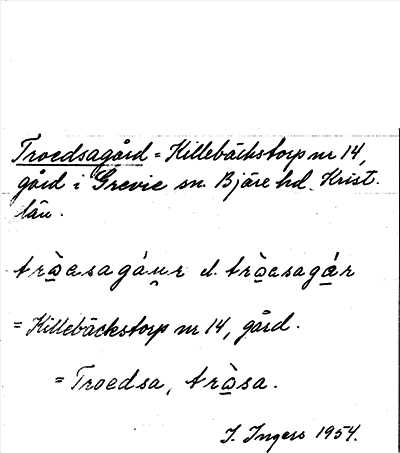 Troedsagård = Killebäckstorp nr 14,
gård i Grevie sn. Bjäre hd. Krist.
län.
tràesagáur el. tràesagár
= Killebäckstorp nr 14, gård.
= Troedsa, tràsa.
I. Ingers 1954.